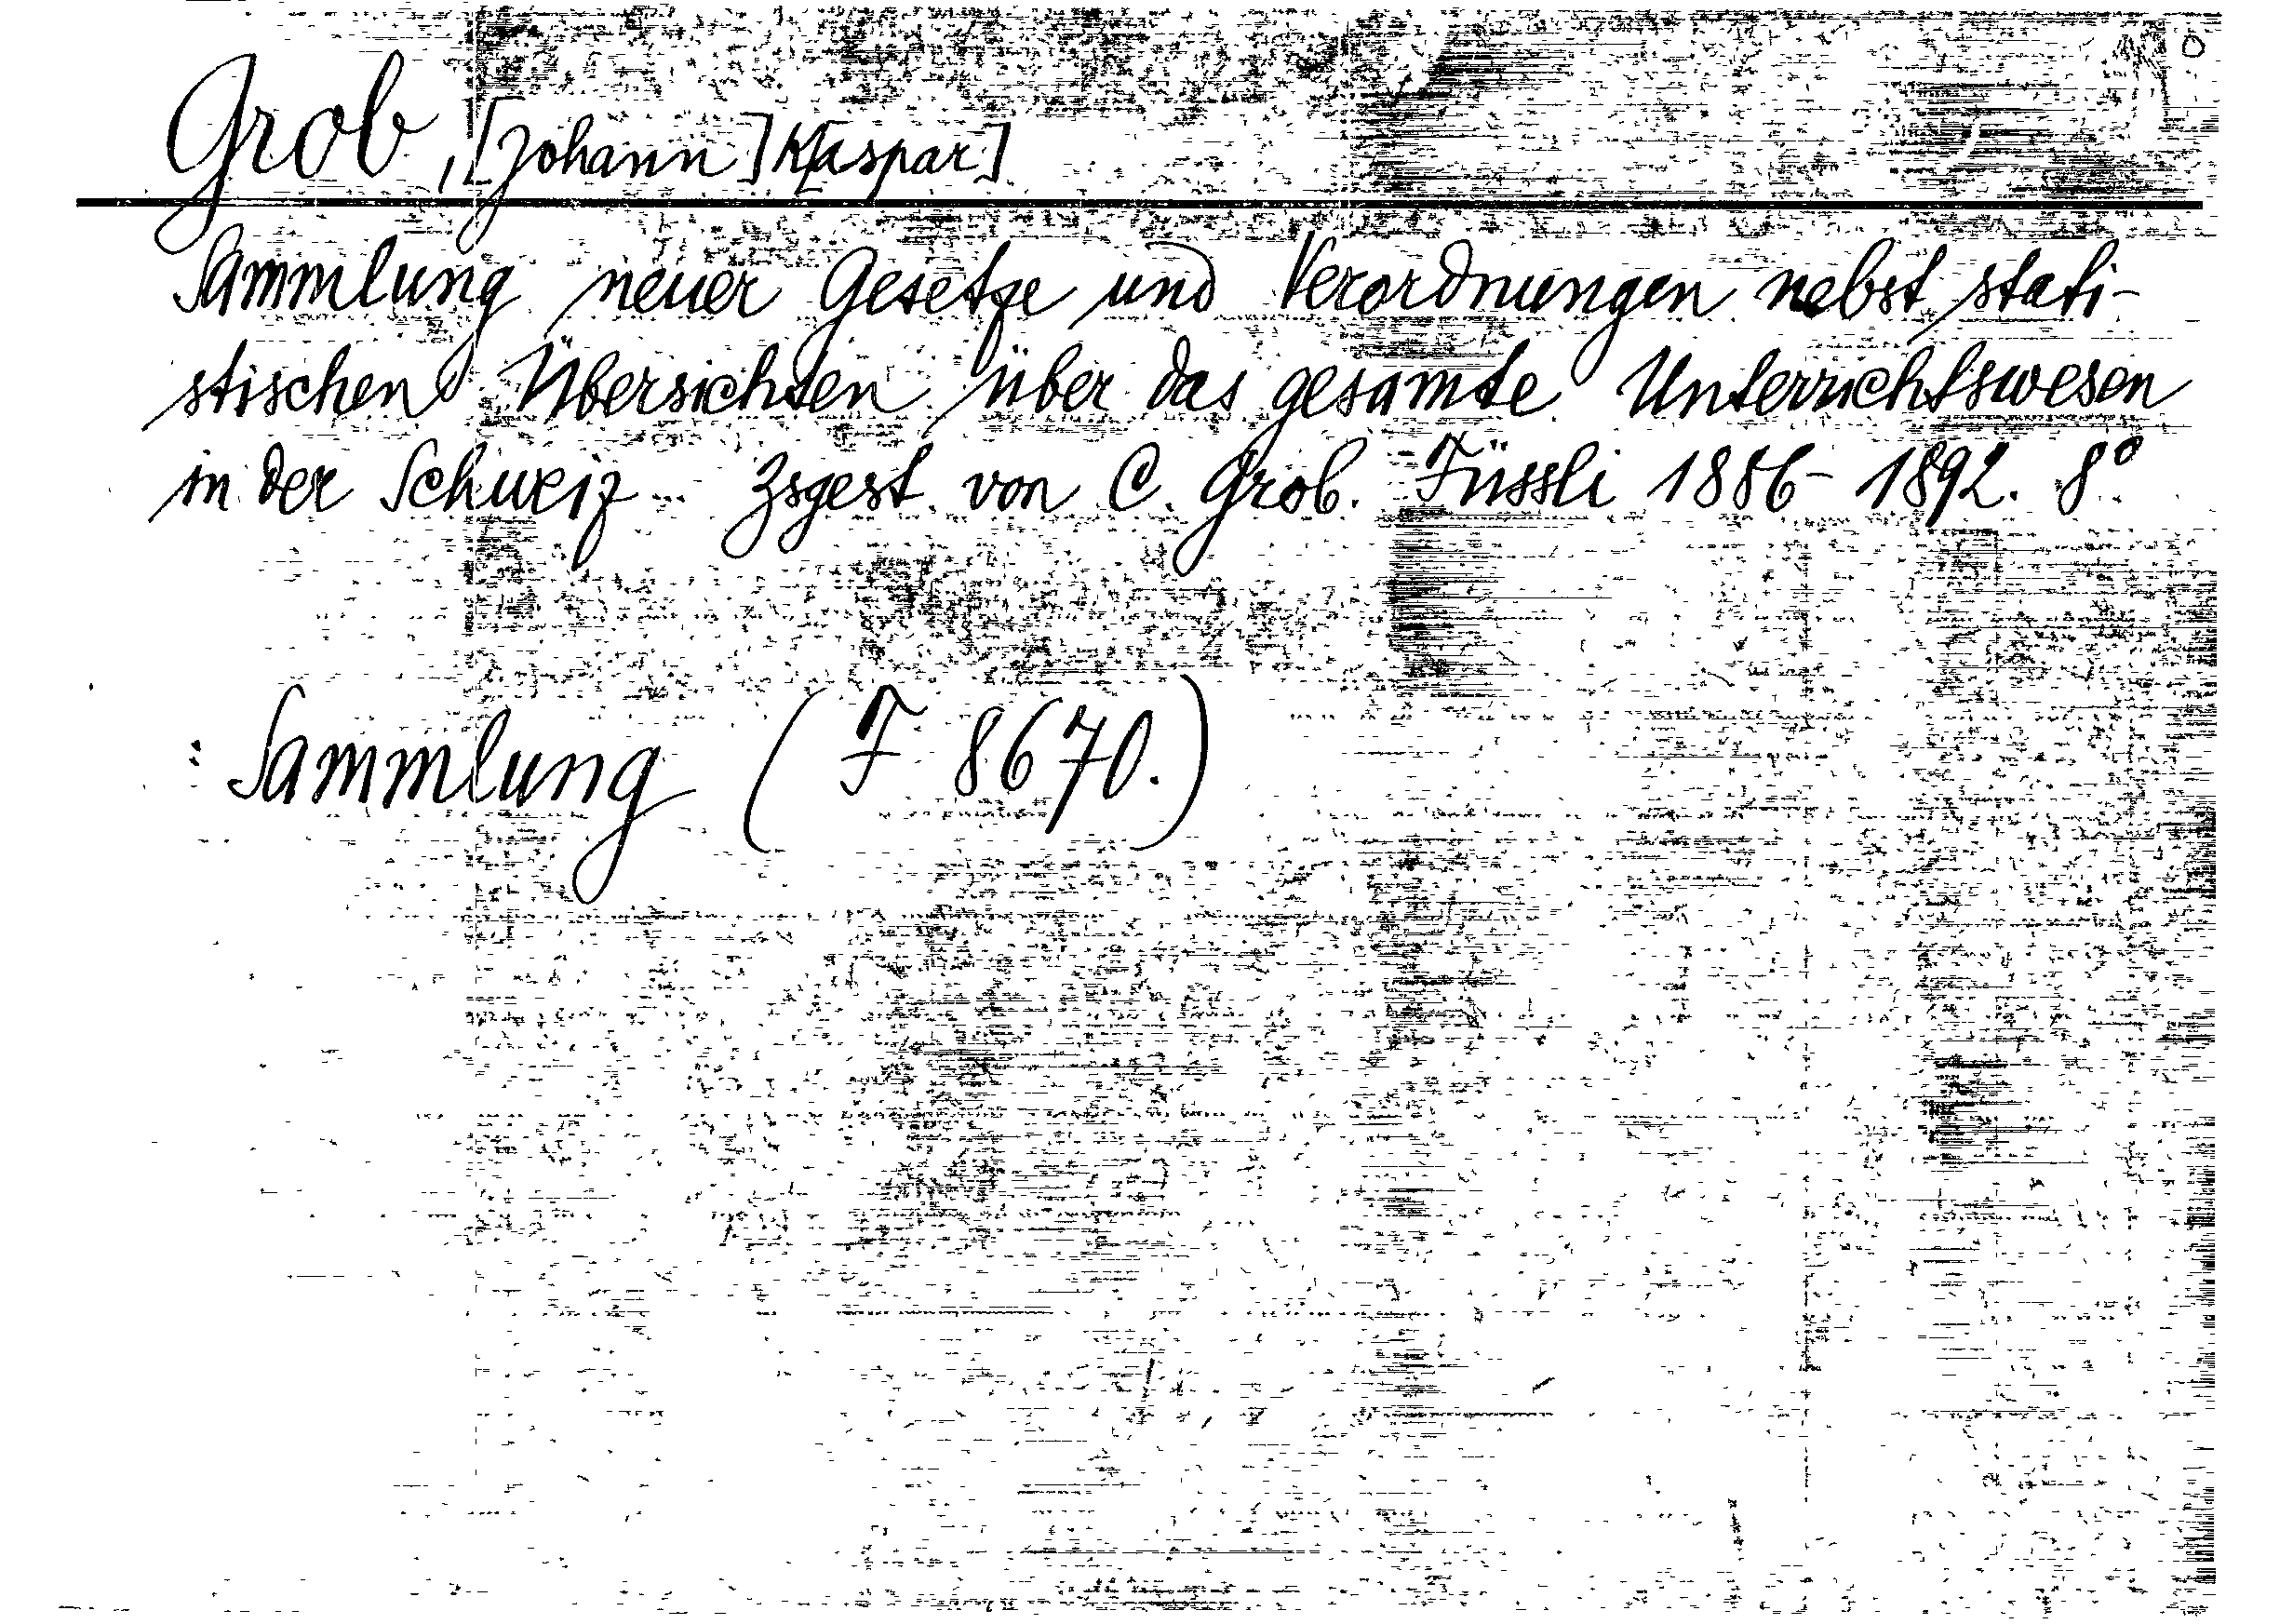 Grob, [Johann] K[aspar]
Sammlung neuer Gesetze und Verordnungen nebst stati-
stischen Übersichten über das gesamte Unterrichtswesen
in der Schweiz... Zsgest. von C. Grob. Füssli 1886-1892. 8°
: Sammlung (F 8670.)